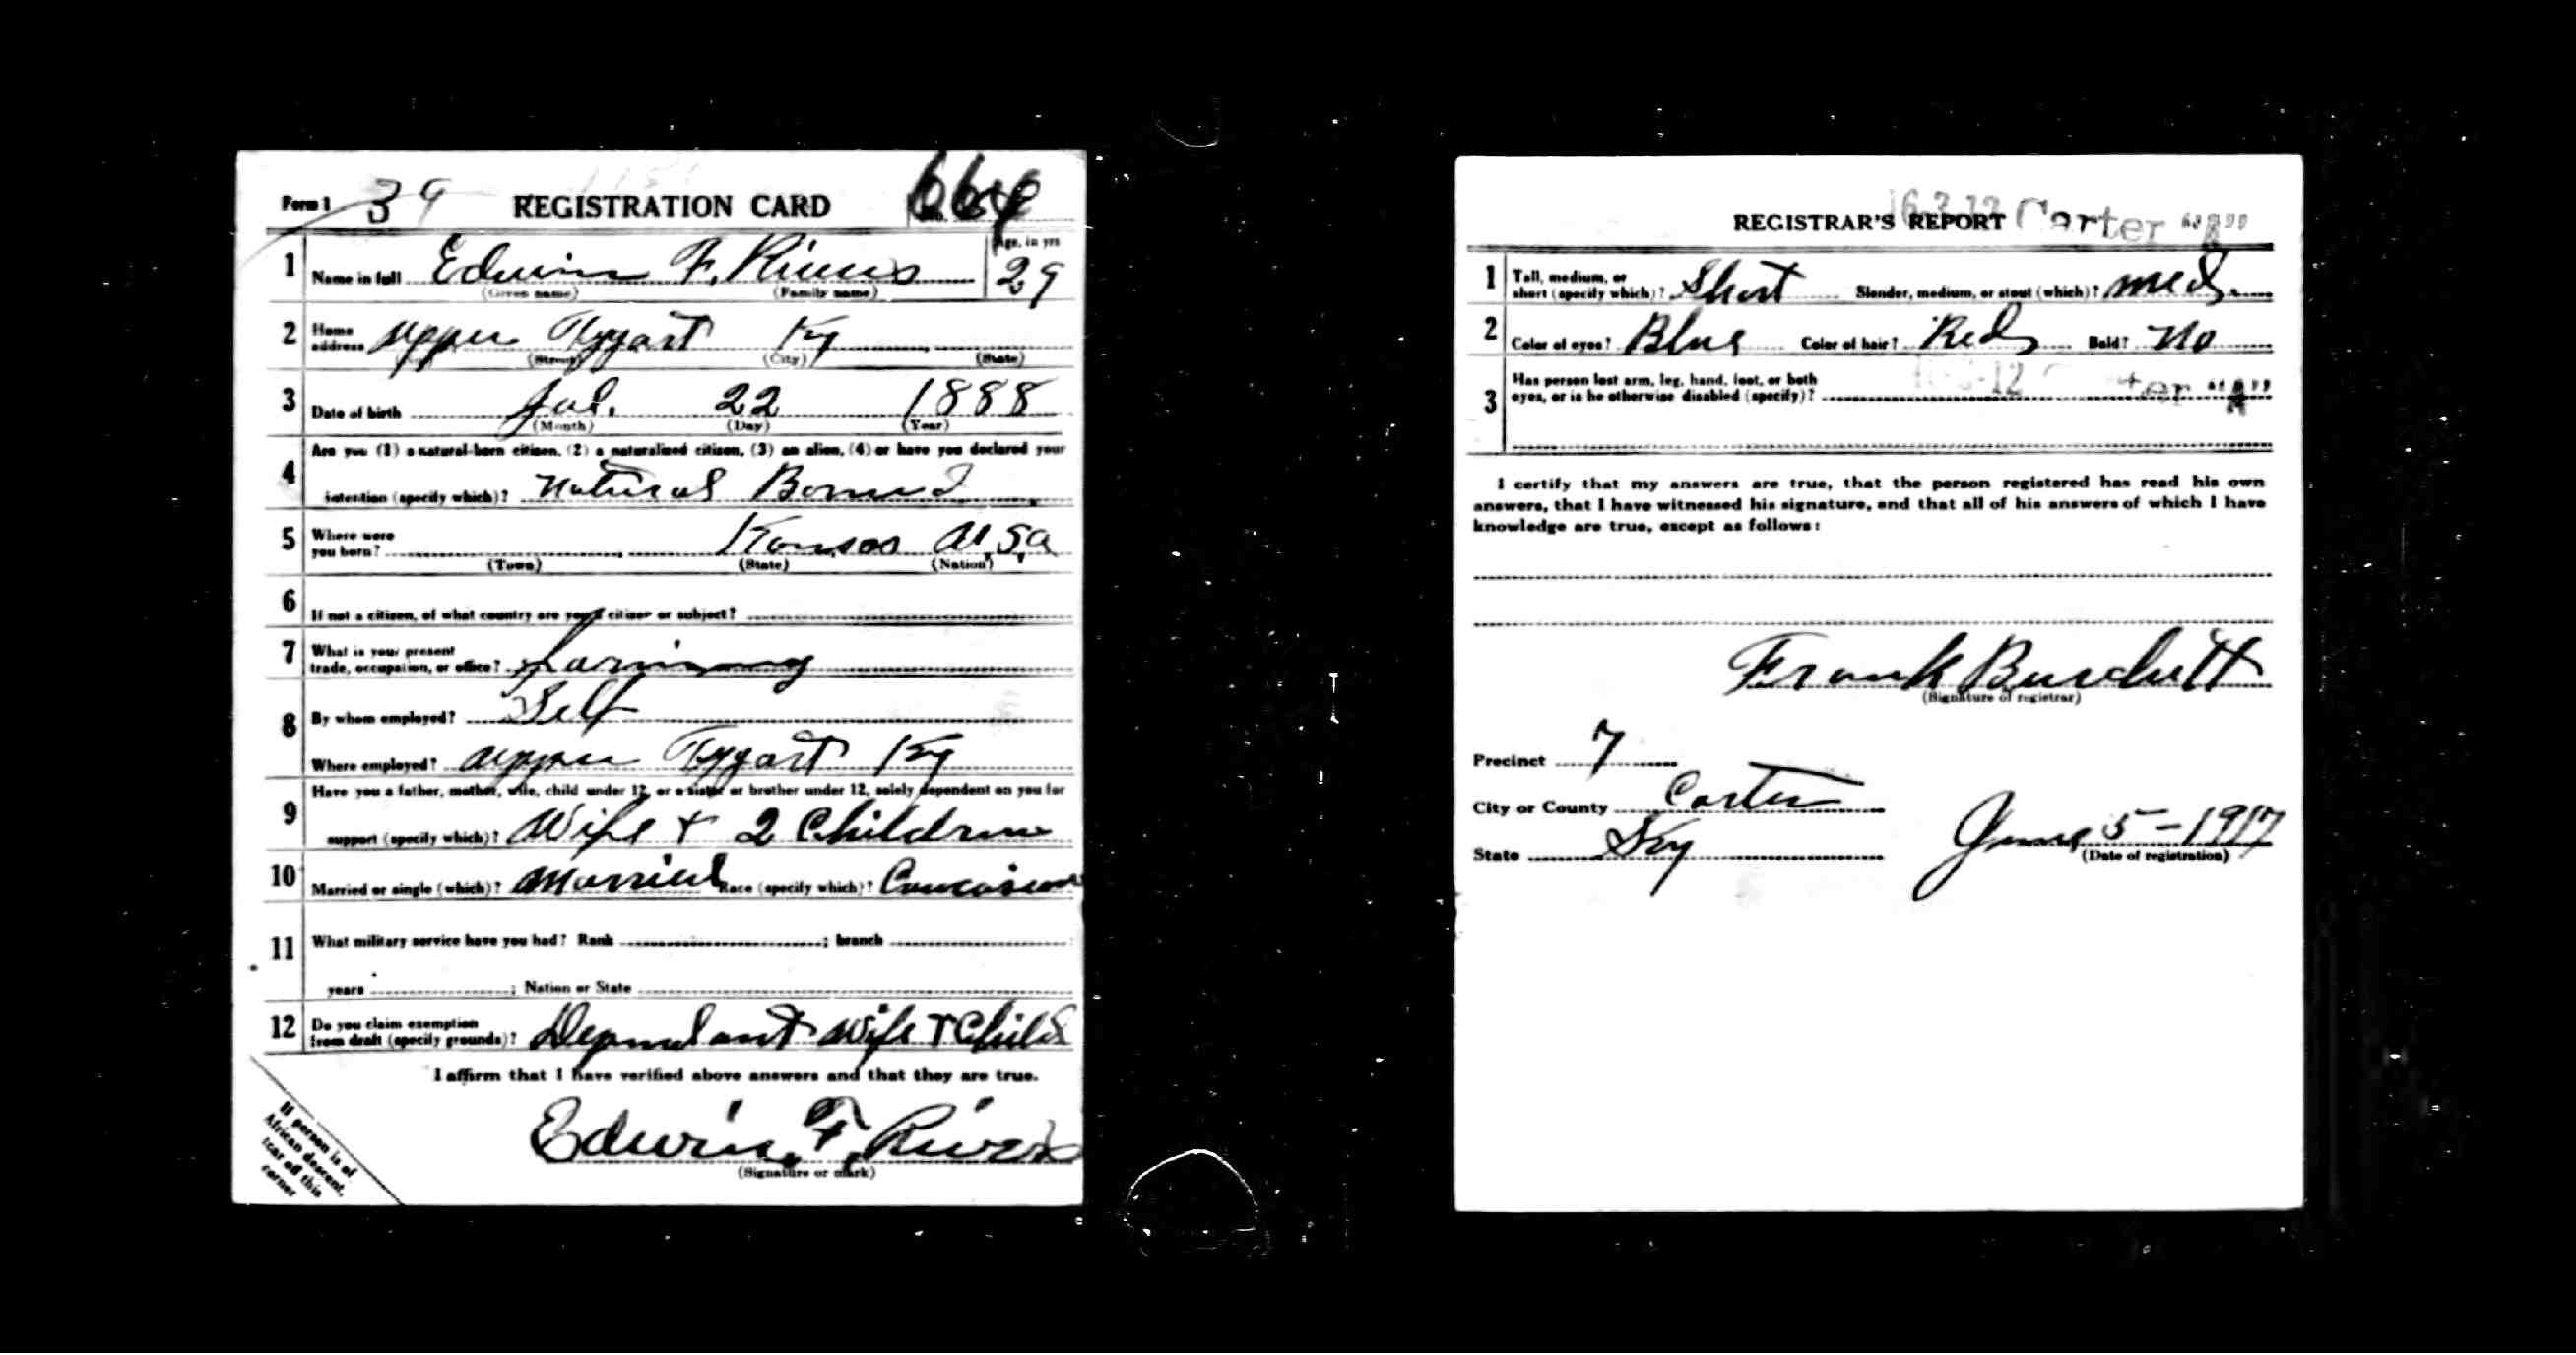 Form 1 39 REGISTRATION CARD No. 64
Age, in yrs
1 Name in full Edwin F. Rivers 29
(Given name) (Family name)
2 Home address Upper Tygart Ky
(Street) (City) (State)
3 Date of birth Jul. 22 1888
(Month) (Day) (Year)
Are you (1) a natural-born citizen, (2) a naturalized citizen, (3) an alien, (4) or have you declared your
4 intention (specify which)? Natural Bornd
5 Where were you born? Kansas U.S.a
(Town) (State) (Nation)
6 If not a citizen, of what country are you a citizen or subject?
7 What is your present trade, occupation, or office? Farming
8 By whom employed? Self
Where employed? Upper Tygart Ky
Have you a father, mother, wife, child under 12, or a sister or brother under 12, solely dependent on you for
9 support (specify which)? Wife + 2 Children
10 Married or single (which)? Married Race (specify which)? Caucasian
11 What military service have you had? Rank ; branch
years ; Nation or State
12 Do you claim exemption from draft (specify grounds)? Dependant Wife + Child
I affirm that I have verified above answers and that they are true.
Edwin. F. Rivers
(Signature or mark)
If person is of
African descent,
tear off this
corner
REGISTRAR'S REPORT Carter "A"
1 Tall, medium, or short (specify which)? Short Slender, medium, or stout (which)? med.
2 Color of eyes? Blue Color of hair? Red Bald? No
3 Has person lost arm, leg, hand, foot, or both
eyes, or is he otherwise disabled (specify)?
I certify that my answers are true, that the person registered has read his own
answers, that I have witnessed his signature, and that all of his answers of which I have
knowledge are true, except as follows:
Frank Burchett
(Signature of registrar)
Precinct 7
City or County Carter
State Ky June 5-1917
(Date of registration)